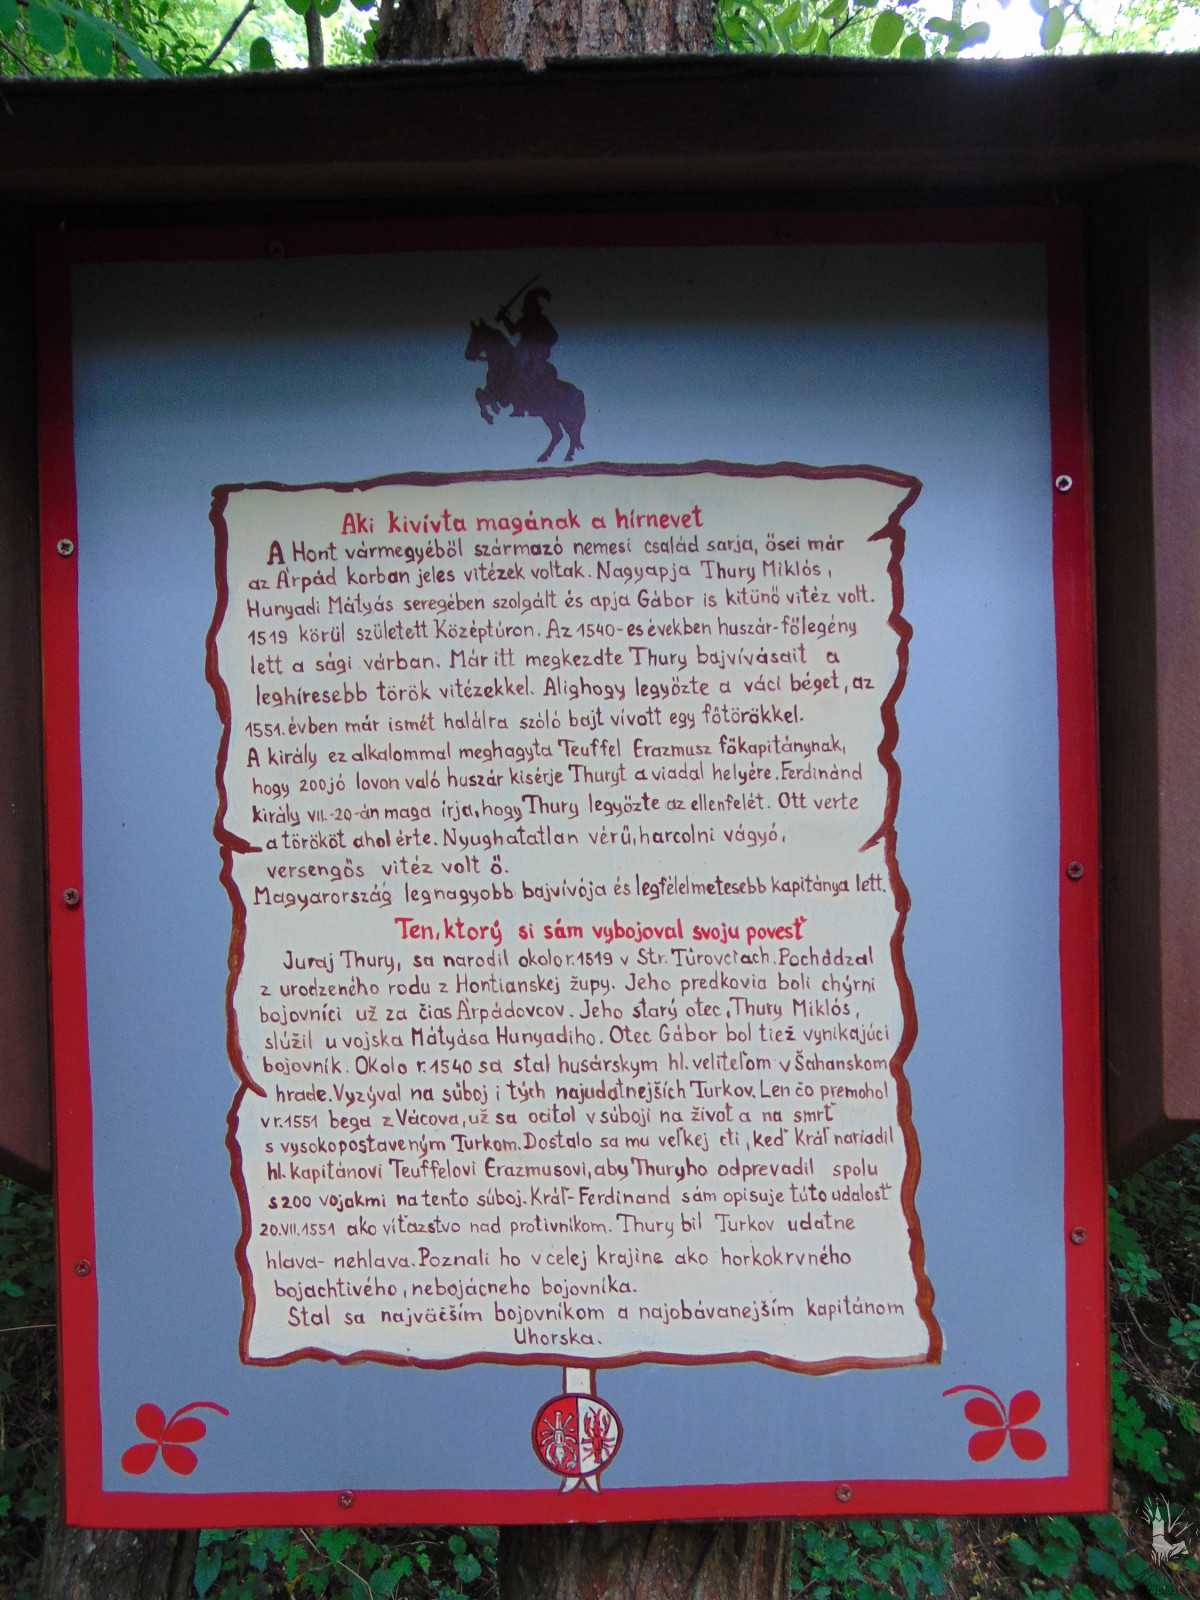 Aki kivívta magának a hírnevet
A Hont vármegyéből származó nemesi család sarja, ősei már
az Árpád korban jeles vitézek voltak. Nagyapja Thury Miklós,
Hunyadi Mátyás seregében szolgált és apja Gábor is kitünő vitéz volt.
1519 körül született Középtúron. Az 1540-es években huszár-főlegény
lett a sági várban. Már itt megkezdte Thury bajvívásait a
leghíresebb török vitézekkel. Alighogy legyőzte a váci béget, az
1551. évben már ismét halálra szóló bajt vívott egy főtörökkel.
A király ez alkalommal meghagyta Teuffel Erazmusz főkapitánynak,
hogy 200 jó lovon való huszár kisérje Thuryt a viadal helyére. Ferdinánd
király VII.-20-án maga írja, hogy Thury legyőzte az ellenfelét. Ott verte
a törököt ahol érte. Nyughatatlan vérű, harcolni vágyó,
versengős vitéz volt ő.
Magyarország legnagyobb bajvívója és legfélelmetesebb kapitánya lett.
Ten, ktorý si sám vybojoval svoju povesť
Juraj Thury, sa narodil okolo r. 1519 v Str. Túrovciach. Pochádzal
z urodzeného rodu z Hontianskej župy. Jeho predkovia boli chýrni
bojovníci už za čias Árpádovcov. Jeho starý otec, Thury Miklós,
slúžil u vojska Mátyása Hunyadiho. Otec Gábor bol tiež vynikajúci
bojovník. Okolo r. 1540 sa stal husárskym hl. veliteľom v Šahanskom
hrade. Vyzýval na súboj i tých najudatnejších Turkov. Len čo premohol
v r. 1551 bega z Vácova, už sa ocitol v súboji na život a na smrť
s vysokopostaveným Turkom. Dostalo sa mu veľkej cti, keď Kráľ nariadil
hl. kapitánovi Teuffelovi Erazmusovi, aby Thuryho odprevadil spolu
s 200 vojakmi na tento súboj. Kráľ-Ferdinand sám opisuje túto udalosť
20.VII.1551 ako víťazstvo nad protivníkom. Thury bil Turkov udatne
hlava-nehlava. Poznali ho v celej krajine ako horkokrvného
bojachtivého, nebojácneho bojovníka.
Stal sa najväčším bojovníkom a najobávanejším kapitánom
Uhorska.